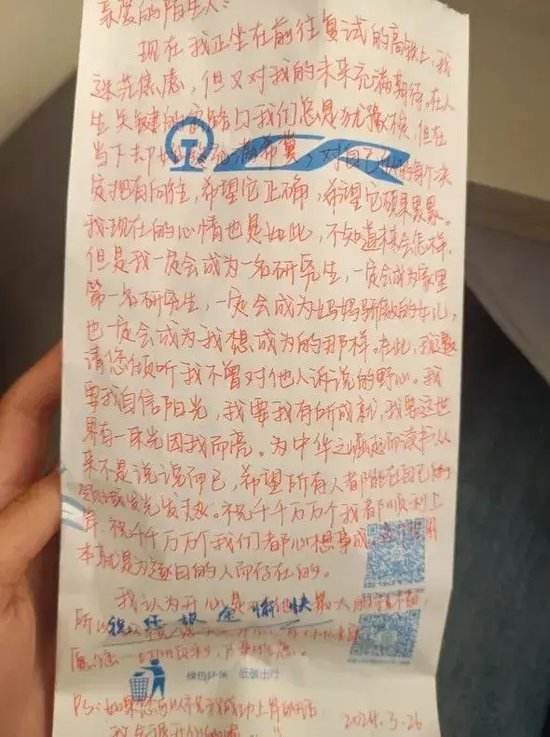 亲爱的陌生人：
现在我正坐在前往复试的高铁上，我
迷茫焦虑，但又对我的未来充满期待。在人
生关键的 我们总是犹豫不决，但在
当下却 满希冀，对自己做的每个决
定抱有向往，希望它正确，希望它硕果累累。
我现在的心情也是如此，不知道接会怎样，
但是我一定会成为一名研究生，一定会成为家里
第一名研究生，一定会成为妈妈骄傲的女儿，
也一定会成为我想成为的那样。在此，我邀
请您倾听我不曾对他人诉说的野心。我
要我自信阳光，我要我有所成就，我要这世
界有一束光因我而亮。为中华之崛起而读书从
来不是说说而已，希望所有人都能在自己的
领域发光发热。祝千千万万个我都顺利上
岸，祝千千万万个我们都心想事成，这个世界
本就是为逐目的人而存在的。
我认为开心是对 最大的
所以祝 旅途愉快
愿您一切 顺利，万事
绿色环保 低碳出行
PS：如果您 我成功上岸的话
2024.3.26